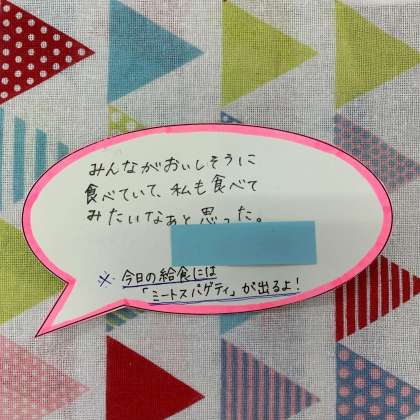 みんながおいしそうに
食べていて、私も食べて
みたいなぁと思った。
※ 今日の給食には
「ミートスパゲティ」が出るよ!